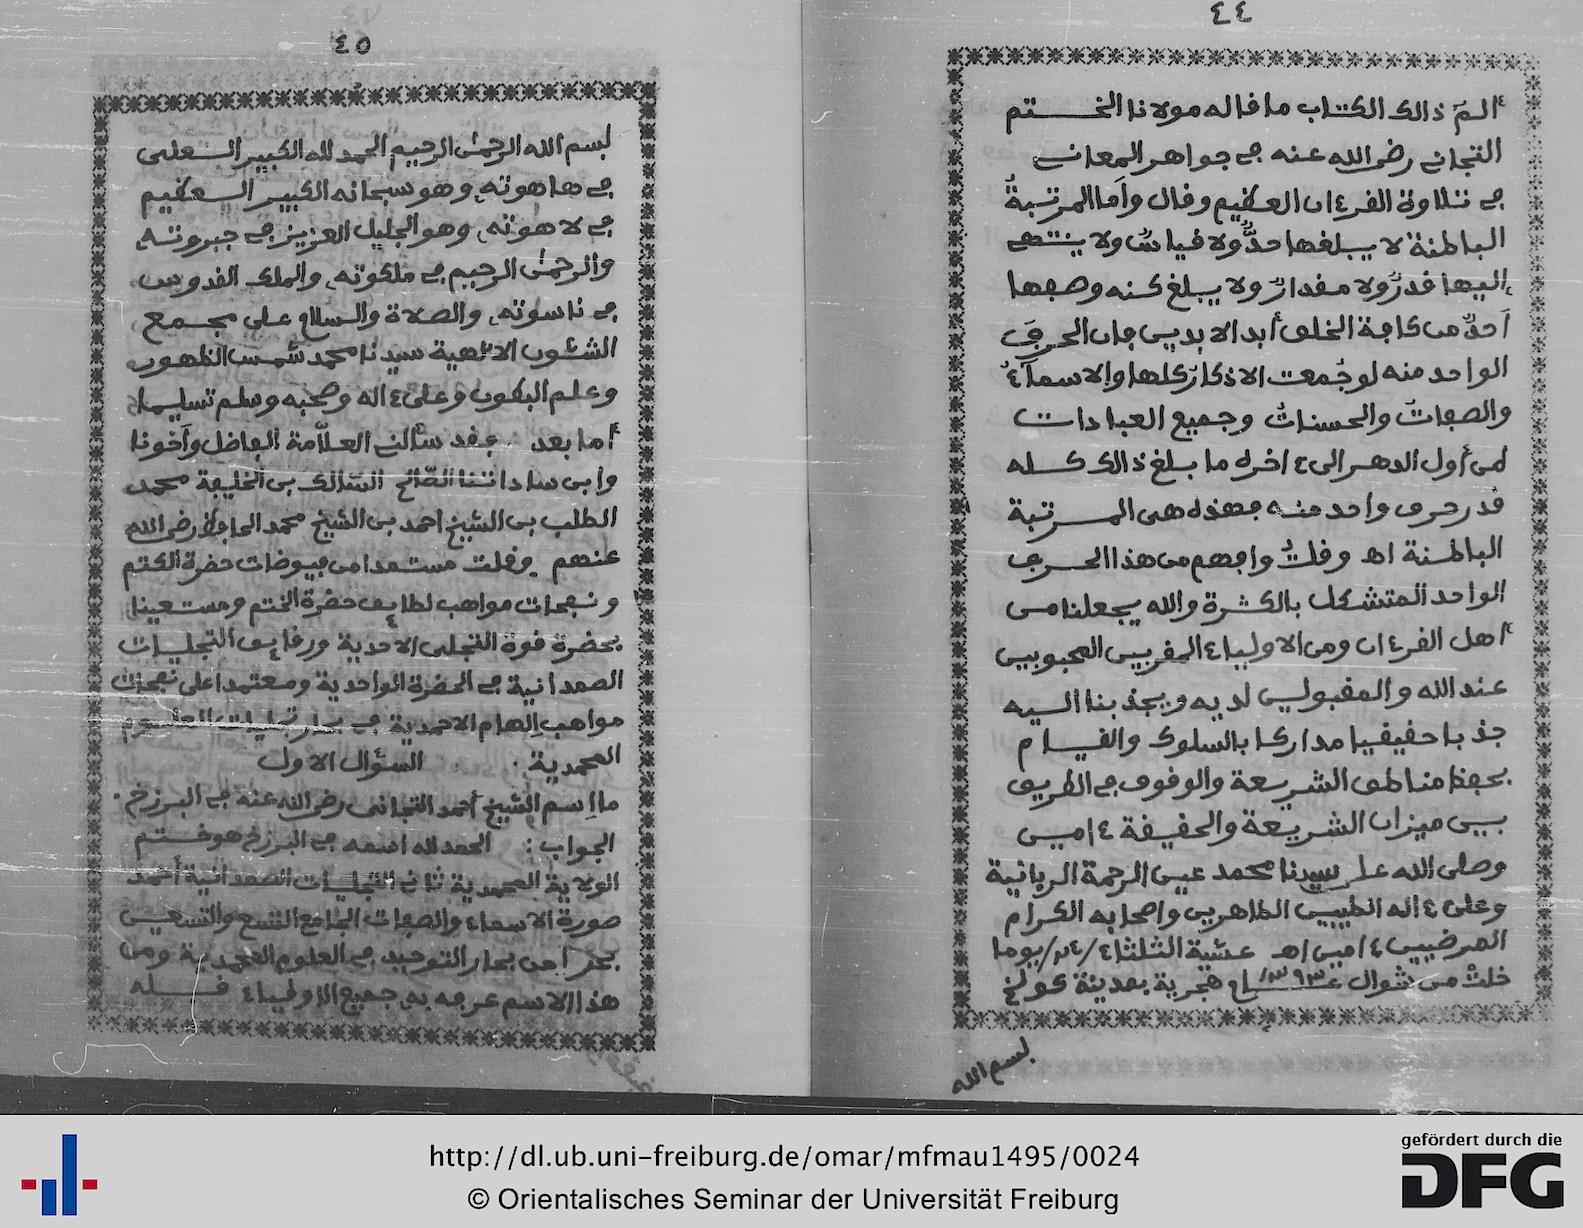 ٤٤
الم ذالك الكتاب ما قاله مولانا الختم
التجاني رضي الله عنه في جواهر المعاني
في تلاوة القرءان العظيم وقال وأما المرتبة
الباطنة لا يبلغها حد ولا قياس ولا ينتهي
إليها قدر ولا مقدار ولا يبلغ كنه وصفها
أحد من كافة الخلق أبد الابدين فإن الحرف
الواحد منه لو جمعت الاذكار كلها والاسماء
والصفات والحسنات وجميع العبادات
من أول الدهر الى ءاخره ما بلغ ذالك كله
قدر حرف واحد منه فهذه هي المرتبة
الباطنة اهـ وقلت وافهم من هذا الحرف
الواحد المتشكل بالكثرة والله يجعلنا من
أهل القرءان ومن الاولياء المقربين المحبوبين
عند الله والمقبولين لديه ويجذبنا اليه
جذبا حقيقيا مداركا بالسلوك والقيام
بحفظ مناطق الشريعة والوقوف في الطريق
بين ميزان الشريعة والحقيقة ءامين
وصلى الله على سيدنا محمد عين الرحمة الربانية
وعلى ءاله الطيبين الطاهرين واصحابه الكرام
المرضيين ءامين اهـ عشية الثلثاء /٢٤/ يوما
خلت من شوال عام ١٣٩٣ هجرية بمدينة كولخ
بسم الله
٤٥
بسم الله الرحمن الرحيم الحمد لله الكبير العلي
في هاهوته وهو سبحانه الكبير العظيم
في لاهوته وهو الجليل العزيز في جبروته
والرحمن الرحيم في ملكوته والملك القدوس
في ناسوته والصلاة والسلام على مجمع
الشئون الالهية سيدنا محمد شمس الظهور
وعلم البطون وعلى ءاله وصحبه وسلم تسليما
أما بعد فقد سألني العلامة الفاضل وأخونا
وابن ساداتنا الصالح السالك بن الخليفة محمد
الطلب بن الشيخ احمد بن الشيخ محمد الحافظ رضي الله
عنهم فقلت مستمدا من فيوضات حضرة الكتم
ونفحات مواهب لطايف حضرة الختم ومستعينا
بحضرة قوة التجلي الاحدية ورقايق التجليات
الصمدانية في الحضرة الواحدية ومعتمدا على نفحات
مواهب إلهام الاحمدية في بحار تجليات العلوم
المحمدية السؤال الاول
ما إسم الشيخ أحمد التجاني رضي الله عنه في البرزخ
الجواب : الحمد لله اسمه في البرزخ هو ختم
الولاية المحمدية ثاني التجليات الصمدانية أحمد
صورة الاسماء والصفات الجامع التسع والتسعين
بحرا من بحار التوحيد في العلوم المحمدية ومن
هذا الاسم عرفه به جميع الاولياء قـلـه
http://dl.ub.uni-freiburg.de/omar/mfmau1495/0024
© Orientalisches Seminar der Universität Freiburg
gefördert durch die
DFG